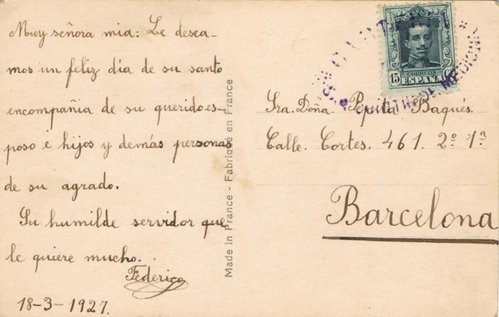 Muy señora mia: Le desea-
mos un feliz día de su santo
encompañía de su querido es-
poso e hijos y demás personas
de su agrado.
Su humilde servidor que
le quiere mucho.
Federico
18-3-1927.
Made in France - Fabriqué en France
15
CORREOS
ESPAÑA
Sra. Doña Pepita Baqués
Calle. Cortes. 461. 2º. 1ª
Barcelona